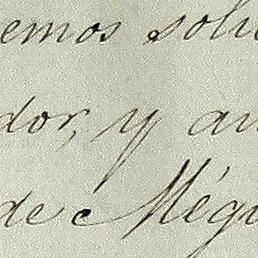 emos soli
dor, y au
de Mégi